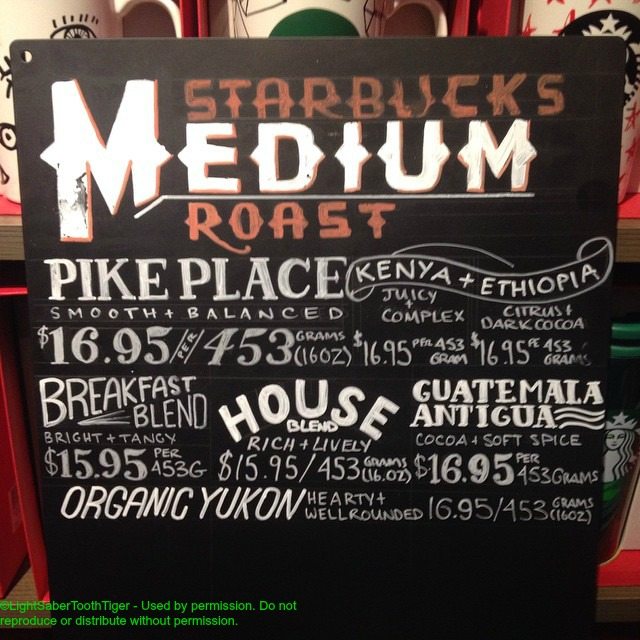 STARBUCKS
MEDIUM
ROAST
PIKE PLACE
SMOOTH + BALANCED
$16.95/PER 453 GRAMS (16OZ)
KENYA + ETHIOPIA
JUICY + COMPLEX
$16.95 PER 453 GRAM
CITRUS + DARK COCOA
$16.95 PE 453 GRAMS
BREAKFAST
BLEND
BRIGHT + TANGY
$15.95 PER 453G
HOUSE
BLEND
RICH + LIVELY
$15.95/453 GRAMS (16.OZ)
GUATEMALA
ANTIGUA
COCOA + SOFT SPICE
$16.95 PER 453 GRAMS
ORGANIC YUKON HEARTY + WELLROUNDED 16.95/453 GRAMS (16OZ)
©LightSaberToothTiger - Used by permission. Do not
reproduce or distribute without permission.